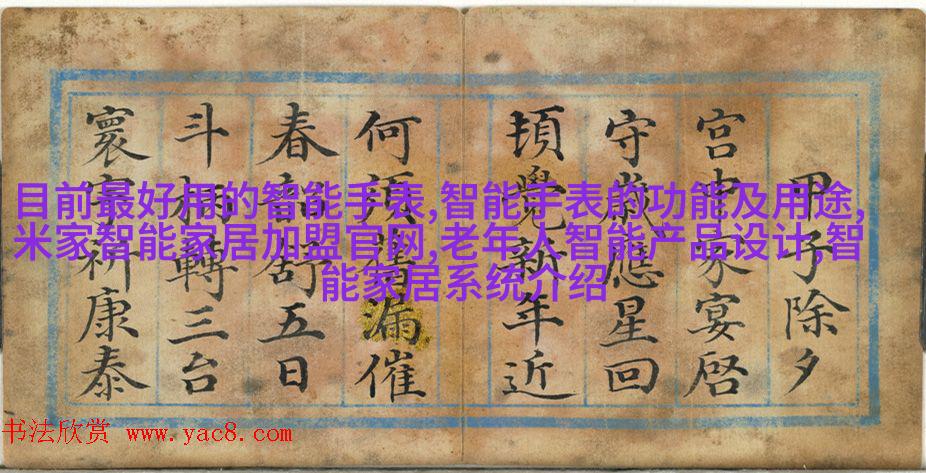 甲子除夕
宮中家宴啓
守歲應星回
頓覺新年近
何須漏催
春舒五日
斗柄轉三台
寰宇祈康泰
目前最好用的智能手表,智能手表的功能及用途,
米家智能家居加盟官网,老年人智能产品设计,智
能家居系统介绍
书法欣赏 www.yac8.com